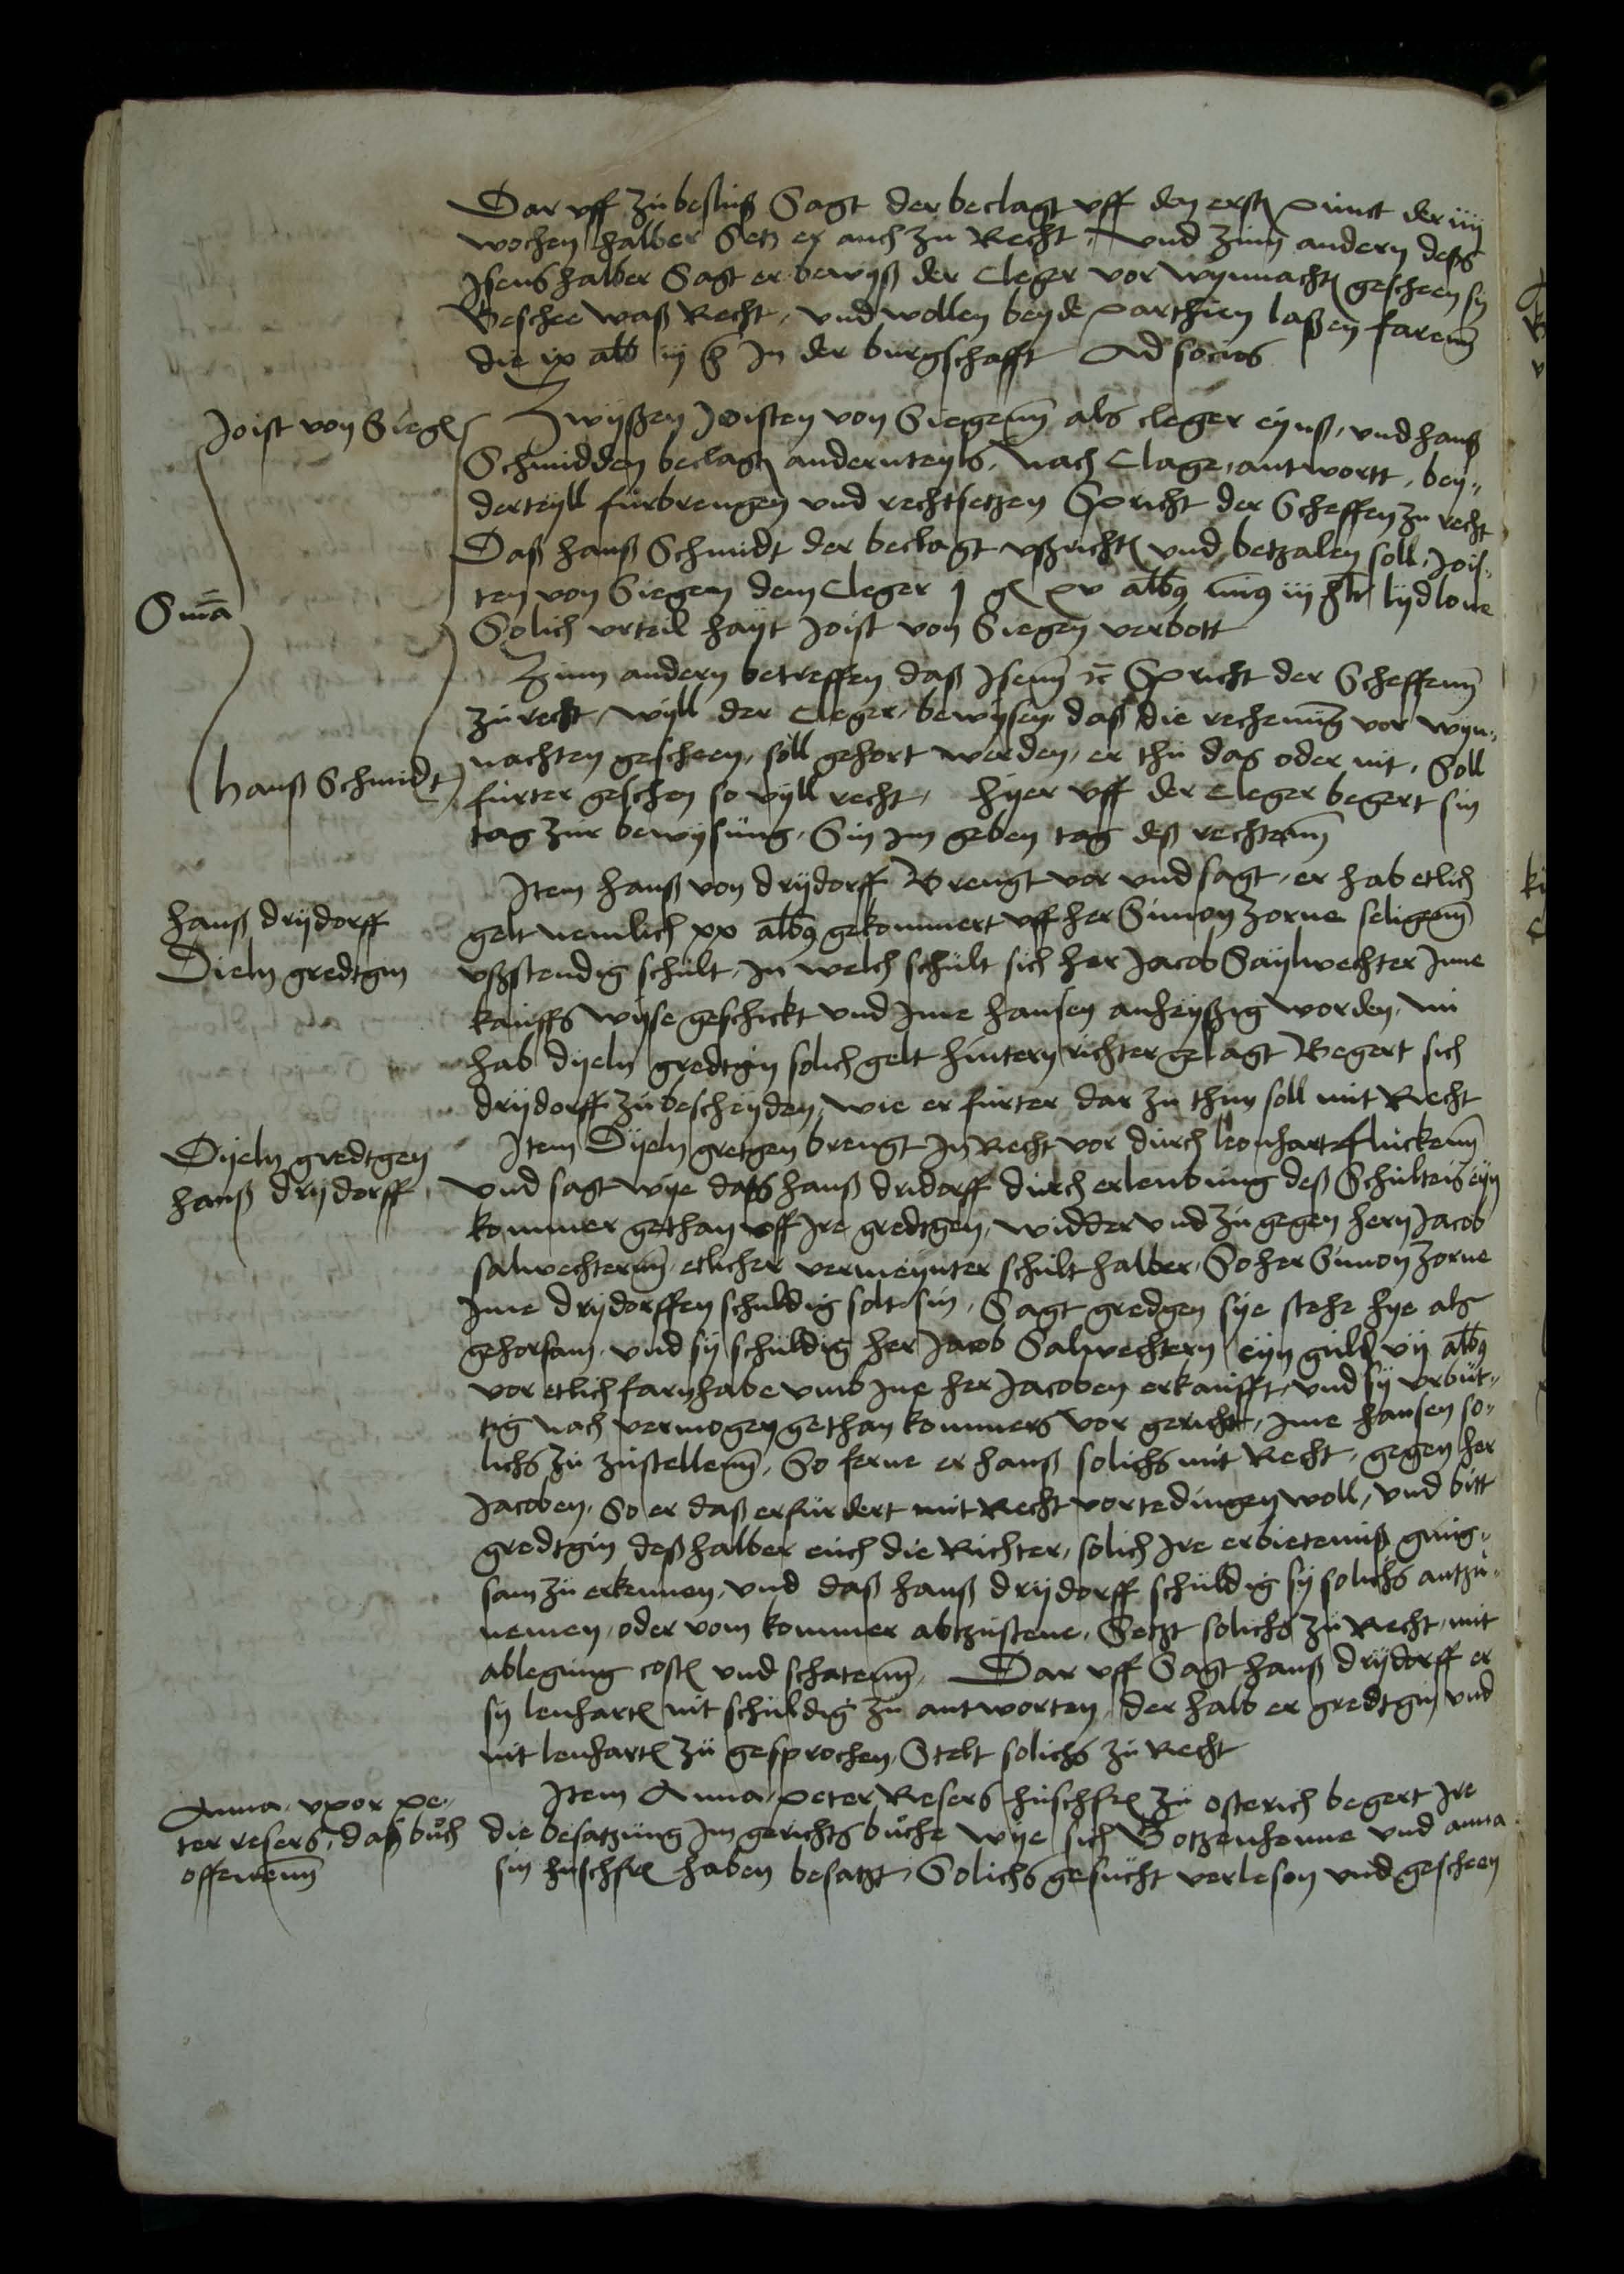 Dar vff zu besluß Sagt der beclagt vff den erst punct der iiij
wochen halber Setz er auch zu Recht, und zum andern deßs
Jsens halber Sagt er bewyß der Cleger vor wynnacht gescheen sy
Beschee waß Recht, und wollen beyde parthien laßen faren
die ix alb iij in der burgschafft Ad socios
Joist von Siegen
Zwyßen Joisten von Siegenn als cleger eynß, und hanß
Schmidden beclagt andernteyls, Nach Clage, antwortt, bey-
derteyll furbrengen und rechtsetzen Spricht der Scheffen zu recht
Daß hanß Schmidt der beclagt vßricht und betzalen soll, Jois-
ten von Siegen dem Cleger j g xv albus minus iij hlr lydlone
Snia
Solich vrteil hayt Joist von Siegen verbott
Zum andern betreffen daß Jsenn Spricht der Scheffenn
zu recht, wyll der Cleger bewysen daß die rechenung vor wyn-
nachten gescheen, soll gehort werden, er thu das oder nit, Soll
hanß Schmidt
furter geschen so vyll recht, hyer vff der Cleger begert sin
tag zur bewysung, Sin im geben tag deß rechtenn
hanß drydorff
Dieln gredtgin
Item hanß von drydorff Brengt vor und sagt, er hab etlich
gelt nemlich xx albus gekommert vff her Simon Zorne seligenn
vßstendig schult, in welch schult sich her Jacob Saylwechter Jnne
kauffs wyse geschickt und Jme hansen anheyßig worden, nu
hab dyeln gredtgin solich gelt hintern richter gelagt Begert sich
drydorff zu bescheyden, wie er furter dar zu thun soll mit Recht
Dyeln gredtgen
hanß drydorff
Item Dyeln gretgen brengt in Recht vor durch leonhart fluckenn
und sagt wye daß hanß dridorff durch erleubung deß Schulteis eyn
kommer gethan vff Jre gredtgen, widder und zu gegen hern Jacob
salwechternn, etlicher vermeynter schult halber, So her Simon Zorne
Jme drydorffen schuldig solt sin, Sagt gredgen sye stehe hye als
gehorsam, und sy schuldig her Jacob Salwechtern eyn guld vij albus
vor etlich farnhabe vmb Jne her Jacoben erkaufft, und sy vrbut-
tig nach vermogen gethan kommers vor gericht, Jme hansen so-
lichs zu zustellenn, So ferne er hanß solichs mit Recht, gegen her
Jacoben, So er daß erfurdert mit Recht vortedingen woll, und bitt
gredtgin deßhalber euch die Richter, solich Jre erbieteniß gnug-
sam zu erkennen, und daß hanß drydorff schuldig sy solichs antzu-
nemen, oder vom kommer abtzustene, Setzt solichs zu Recht, mit
ablegung cost und schatenn, Dar vff Sagt hanß drydorff er
sy lenhart nit schuldig zu antworten, der halb er gredtgin und
nit lenhart zu gesprochen, Stelt solichs zu Recht
Anna, vxor pe-
ter resers, daß buch
offenenn
Item Anna peter Resers huschfr zu osterich begert Jre
die besatzung im gerichtsbuche wye sich Botzenhenne und anna
sin huschfr haben besatzt, Solichs gesucht verlesen und gescheen